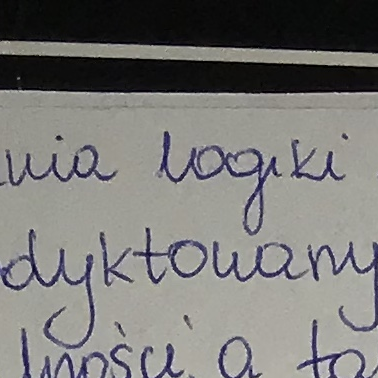 nia logiki
dyktowany
lności, a ta